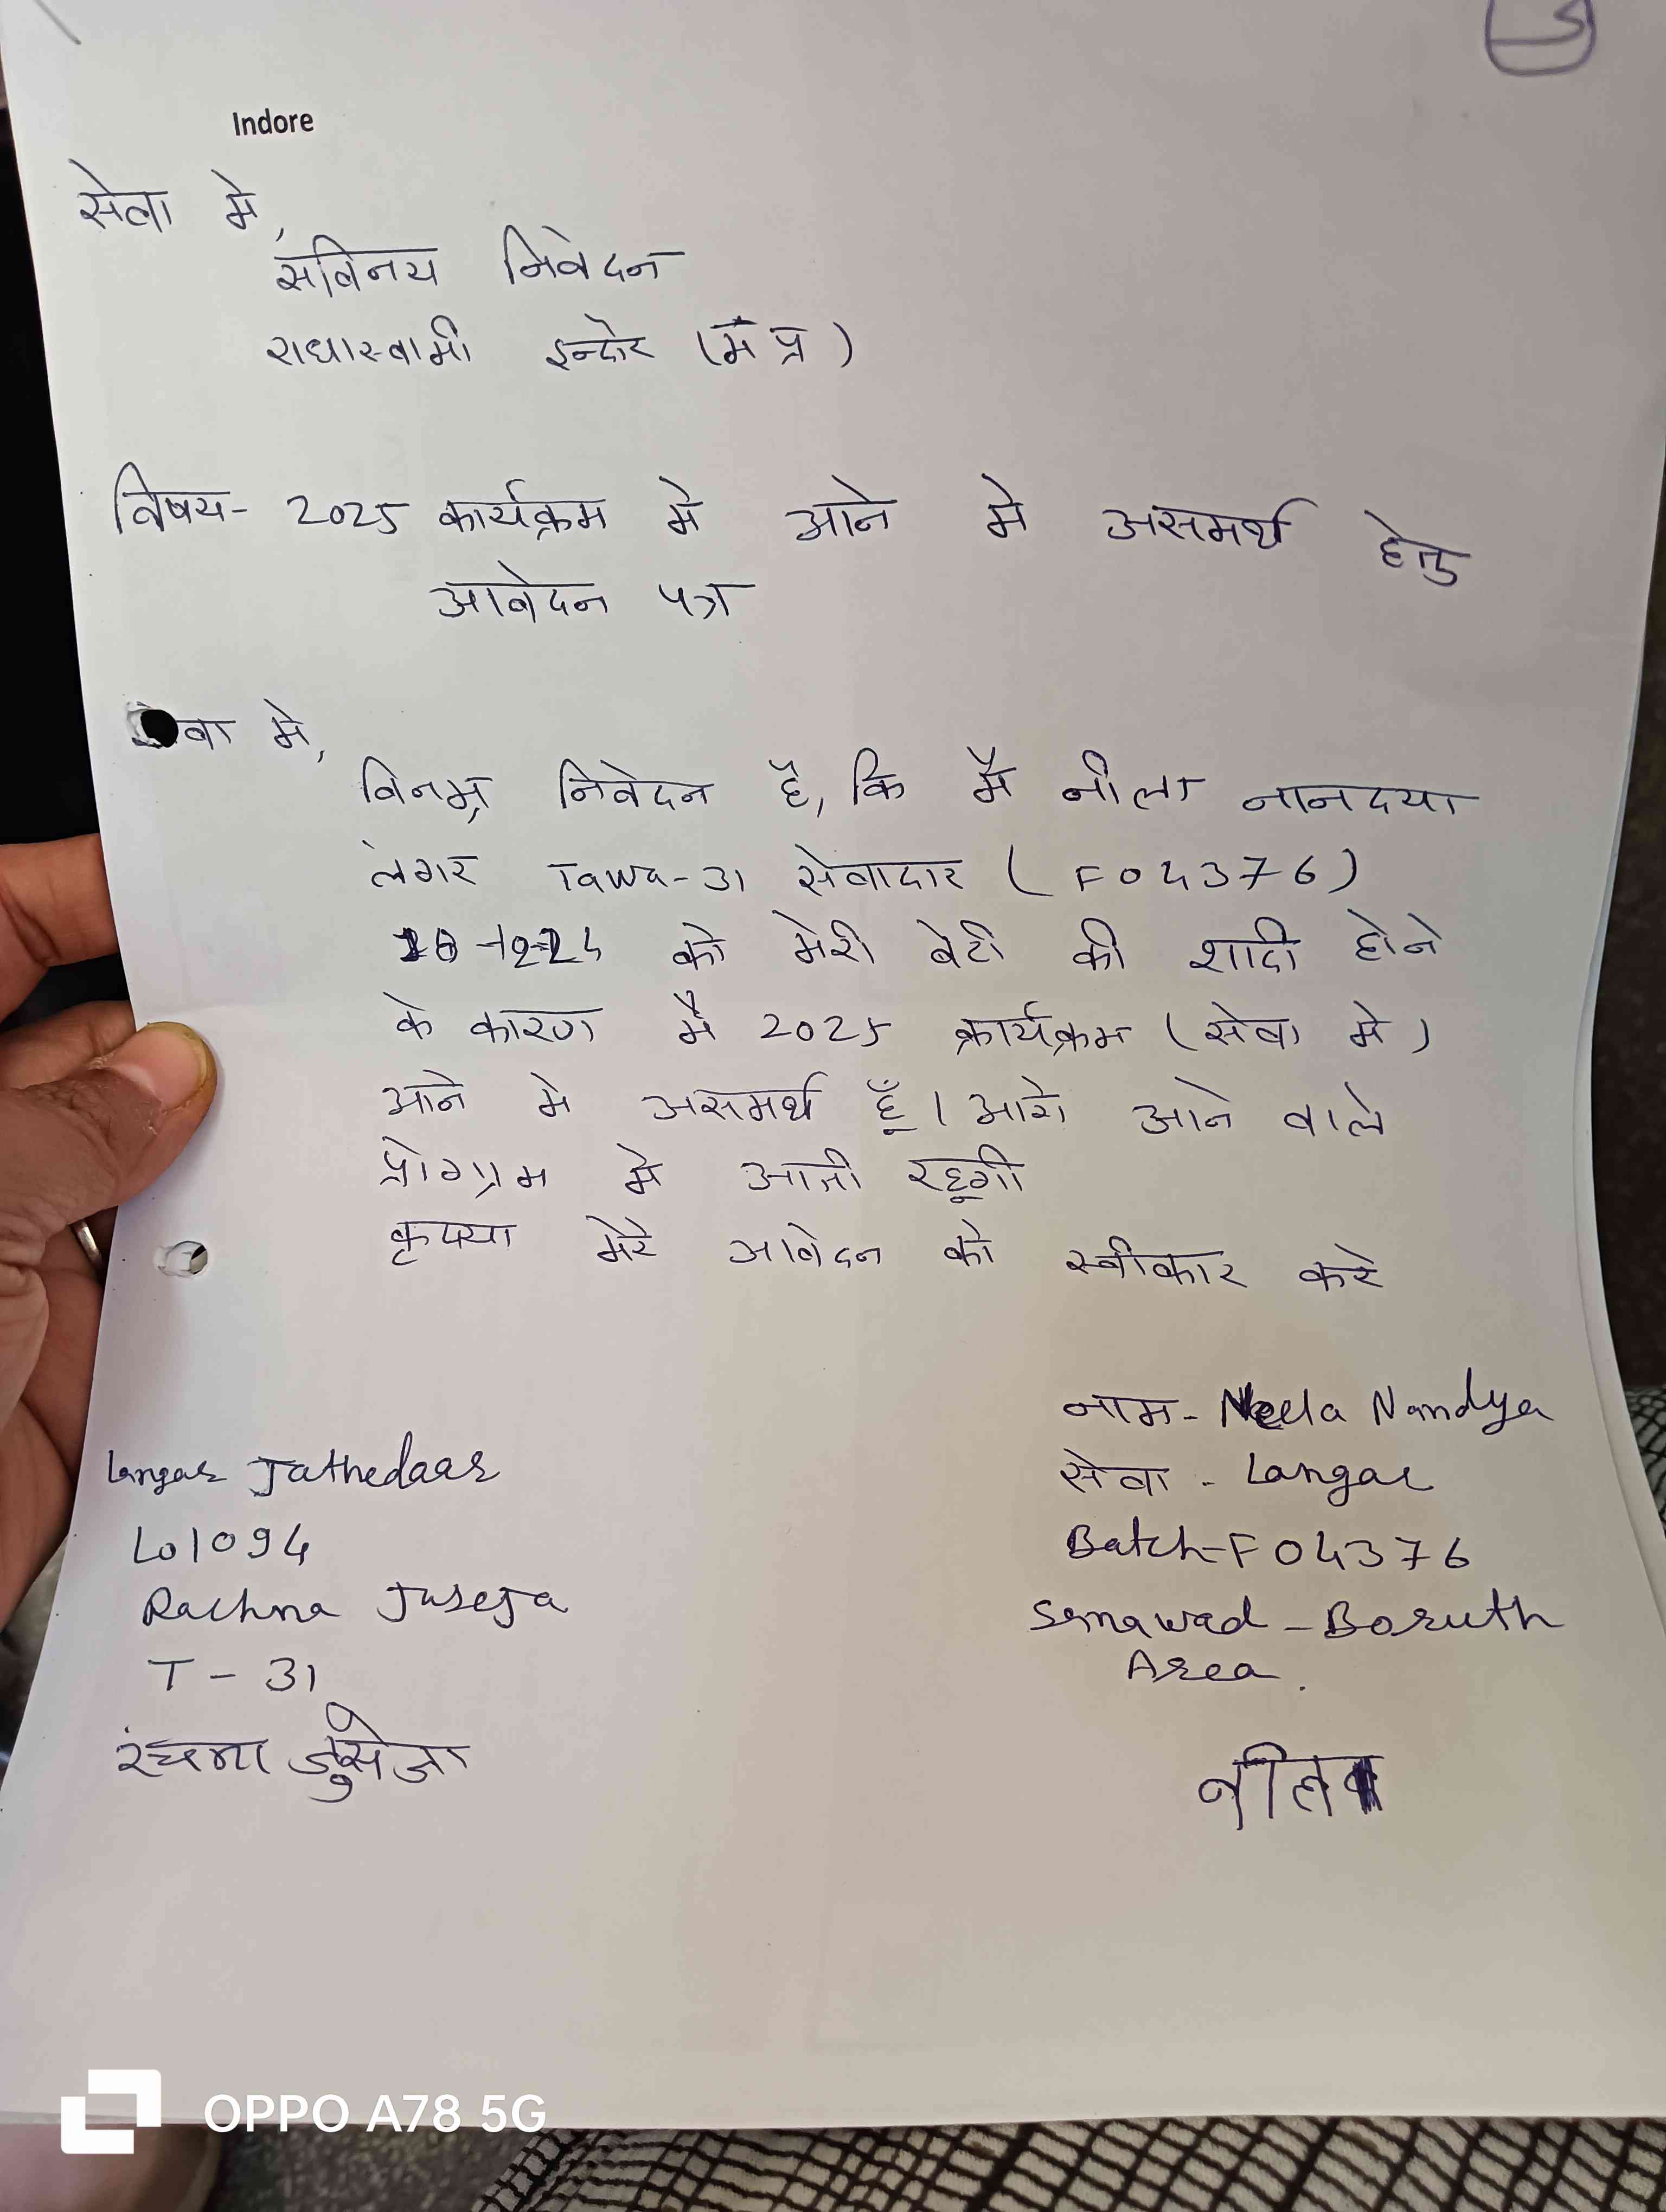 Indore
सेवा मे,
सविनय निवेदन
राधास्वामी इन्दोर (म प्र)
विषय- 2025 कार्यक्रम मे आने मे असमर्थ हेतु
आवेदन पत्र
वा मे,
विनम्र निवेदन है, कि मै नीला नानदया
लंगर Tawa-31 सेवादार (F04376)
को मेरी बेटी की शादी होने
के कारण मै 2025 कार्यक्रम (सेवा मे)
आने मे असमर्थ हूँ। आगे आने वाले
प्रोग्राम मे आती रहूगी
कृपया मेरे आवेदन को स्वीकार करे
नाम- Neela Nandya
सेवा - Langar
Batch-F04376
Sanawad - Boruth
Area.
नीला
Langar Jathedaar
L01094
Rachna Juseja
T-31
रचना जुसेजा
OPPO A78 5G